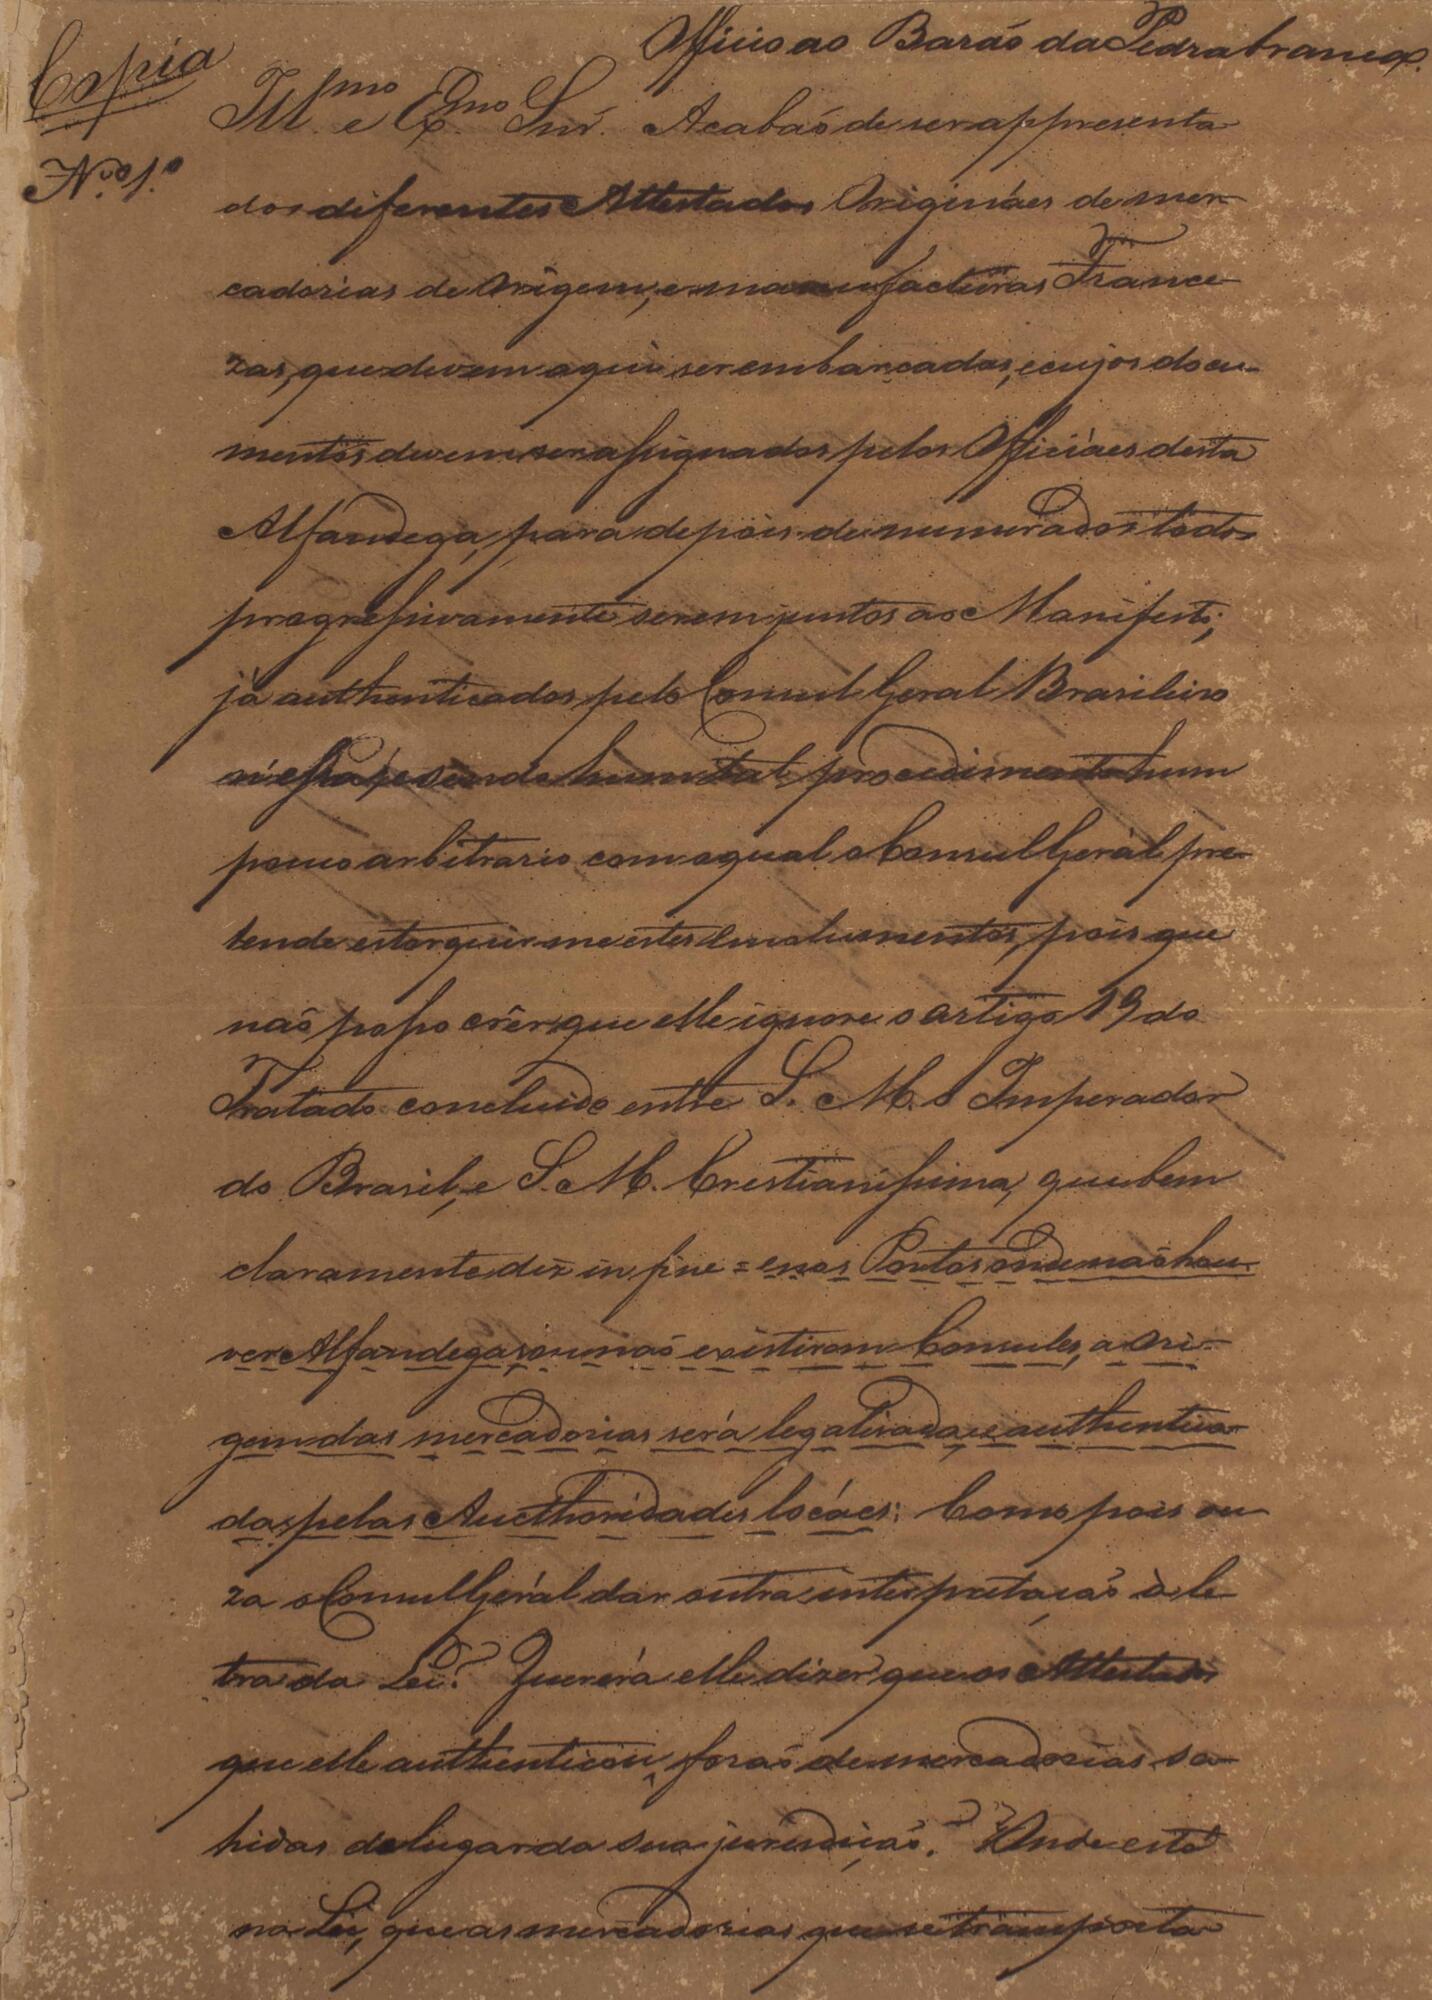 Officio ao Barão da Pedrabranca.
Copia
N.º 1.º
Ill.mo e Ex.mo Snr. Acabaõ de ser appresenta-
dos diferentes Attestados Originães de mer-
cadorias de Origem, e manufacturas France-
zas, que devem aqui ser embarcadas, e cujos docu-
mentos devem ser assignados pelos Officiáes desta
Alfandega, para depois de numerados todos
progressivamente serem juntos ao Manifesto,
já authenticados pelo Consul Geral Brasileiro
hum tal procedimento hum
pouco arbitrario com o qual o Consul Gerál pre-
tende estorquir me estes Emolumentos, pois que
naõ posso crêr que elle ignore o artigo 19 do
Tratado concluido entre S. M. o Imperador
do Brasil, e S. M. Crestianissima, que bem
claramente diz in fine = e nos Portos onde naõ hou-
ver Alfandegas, ou naõ existirem Consules, a ori-
gem das mercadorias será legalisada, e authentica-
da, pelas Aucthoridades locáes: Como pois ou-
za o Consul Gerál dar outra interpretaçaõ à le-
tra da Lei? Quererá elle dizer que os Attestados
que elle authenticou, foraõ de mercadorias sa-
hidas do lugar da sua jurisdiçaõ? Onde está
na Lei, que as mercadorias que se transporta